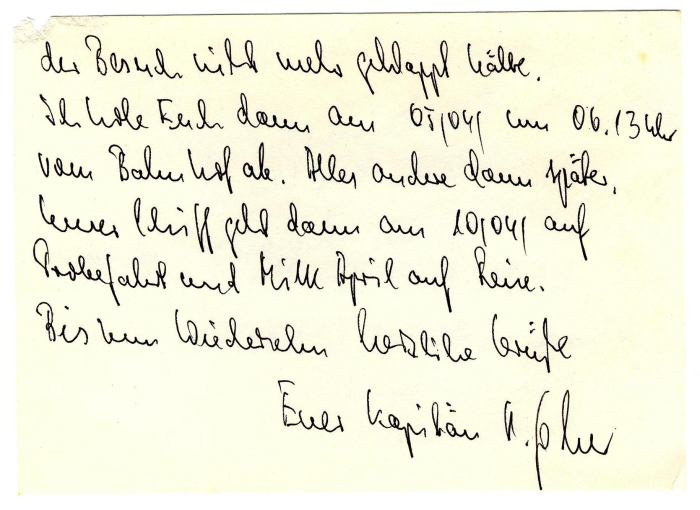 der Besuch nicht mehr geklappt hätte.
Ich hole Euch dann am 05/04/ um 06.13 Uhr
vom Bahnhof ab. Alles andere dann später.
Unser Schiff geht dann am 10/04/ auf
Probefahrt und Mitte April auf Reise.
Bis zum Wiedersehn herzliche Grüße
Euer Kapitän